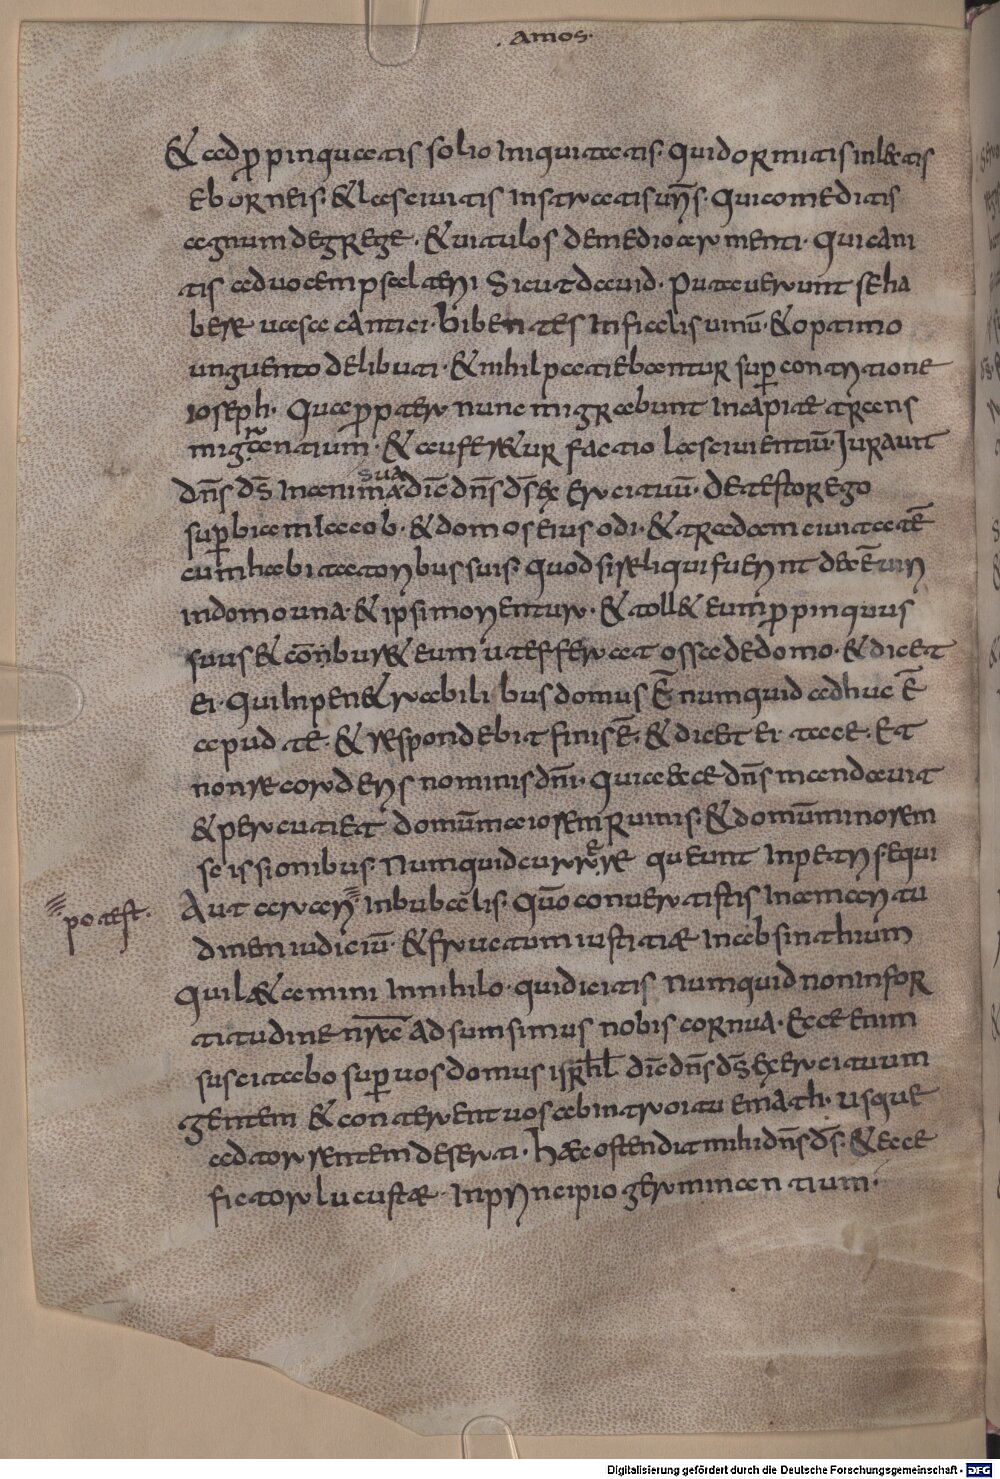 . Amos.
& adp̱pinquatis solio Iniquitatis. Quidormitis inlectis
Eborneis. & lasciuitis Instratisur̄s. Quicomeditis
agnum degrege. & uitulos demedioarmenti. Quicani
tis aduocempsalterii Sicutdauid. Putauerunt seha
bere uasa cantici. bibentes Infialisuinū. & optimo
unguento delibuti. & nihil patiebantur suꝑ contritione
ioseph. Quaꝓpter nunc migrabunt Incapite trans
migrantium. & auferetur factio lasciuientiū. Jurauit
dn̄s ds̄ Inanima sua dic̄ dn̄s ds̄ exercituū. Detestor ego
suꝑbiam Iacob. & domoseius odi. & tradam ciuitatē
cumhabitatoribussuis. quodsireliquifuerint decē uiri
indomouna. & ipsimorientur. & toll& eumꝓpinquus
suus & cōnbur& eum utefferat ossa dedomo. & dicet
ei. Qui Inpenetrabilibus domus ē numquid adhuc ē
apud te. & respondebit finis ē. & dicet ei. tace. Et
nonrecorderis nominis dn̄i. quia ecce dn̄s mandauit
& percutiet domūmaiorem Ruinis. & domūminorem
scissionibus. Numquidcurrere queunt Inpetris equi
potest.
Aut arari Inbubalis. Quō conuertistis Inamaritu
dinem iudiciū. & fructum iustitiae Inabsinthium
Quilaetamini Innihilo. quidicitis Numquidnoninfor
titudine nr̄a adsumsimus nobis cornua. Ecce enim
suscitabo suꝑuosdomus isr̄hl dic̄ dn̄s ds̄ exercituum
gentem & conterent uos abintroitu emath. usque
adtorrentem deserti. haec ostendit mihi dn̄s ds̄. & ecce
fictor lucustae Inprincipio germinantium.
Digitalisierung gefördert durch die Deutsche Forschungsgemeinschaft - DFG